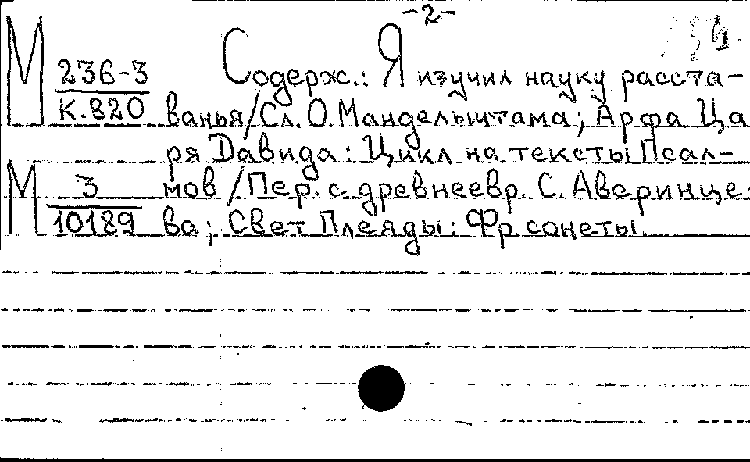 -2-
М 236-3 Содерж.: Я изучил науку расста-
К.820 ванья/Сл. О. Мандельштама; Арфа Ца
ря Давида: Цикл на тексты Псал-
М 3 мов/Пер. с древнеевр. С. Аверинце-
10189 ва; Свет Плеяды: Фр сонеты.